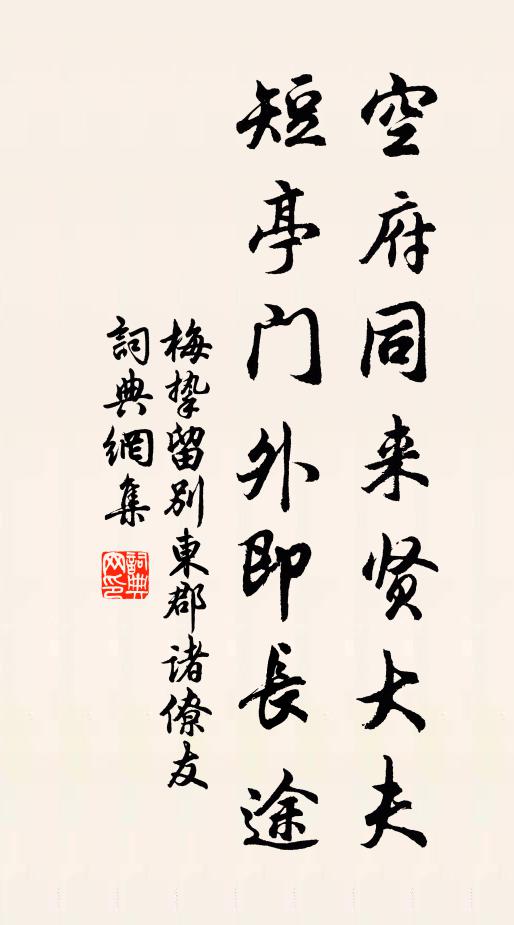 空府同来贤大夫
短亭门外即長途
梅挚留别東郡诸僚友
詞典網集
詞典網印